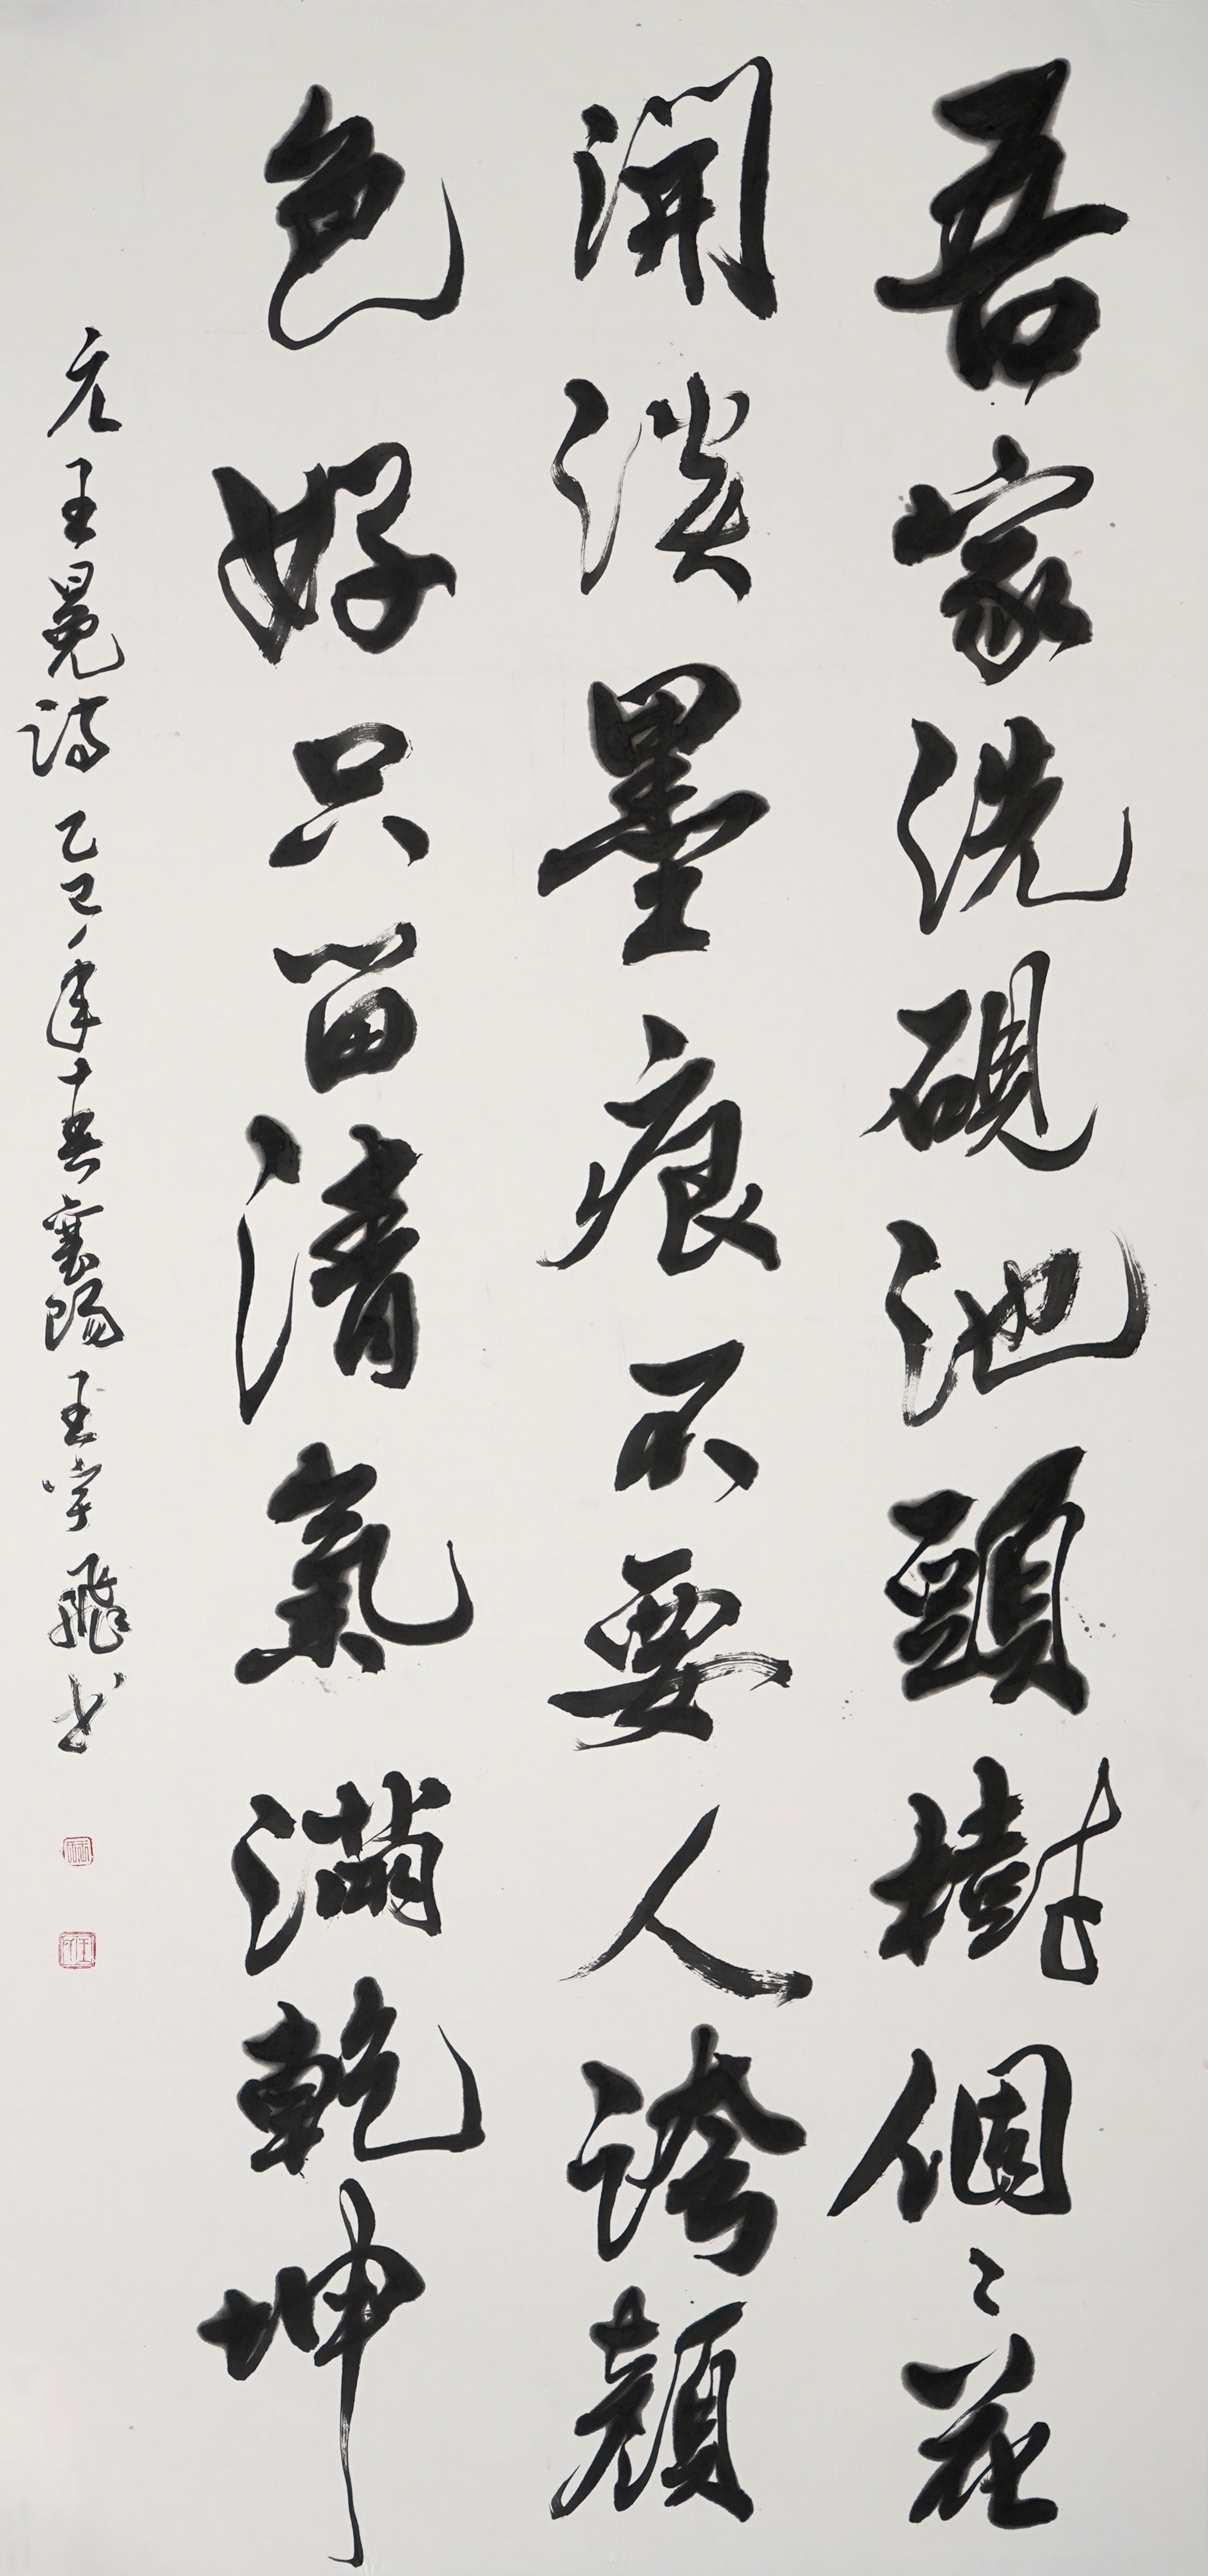 吾家洗硯池頭樹個々花
開淡墨痕不要人誇顏
色好只留清氣滿乾坤
元王冕詩乙巳年襄陽王宇飛书